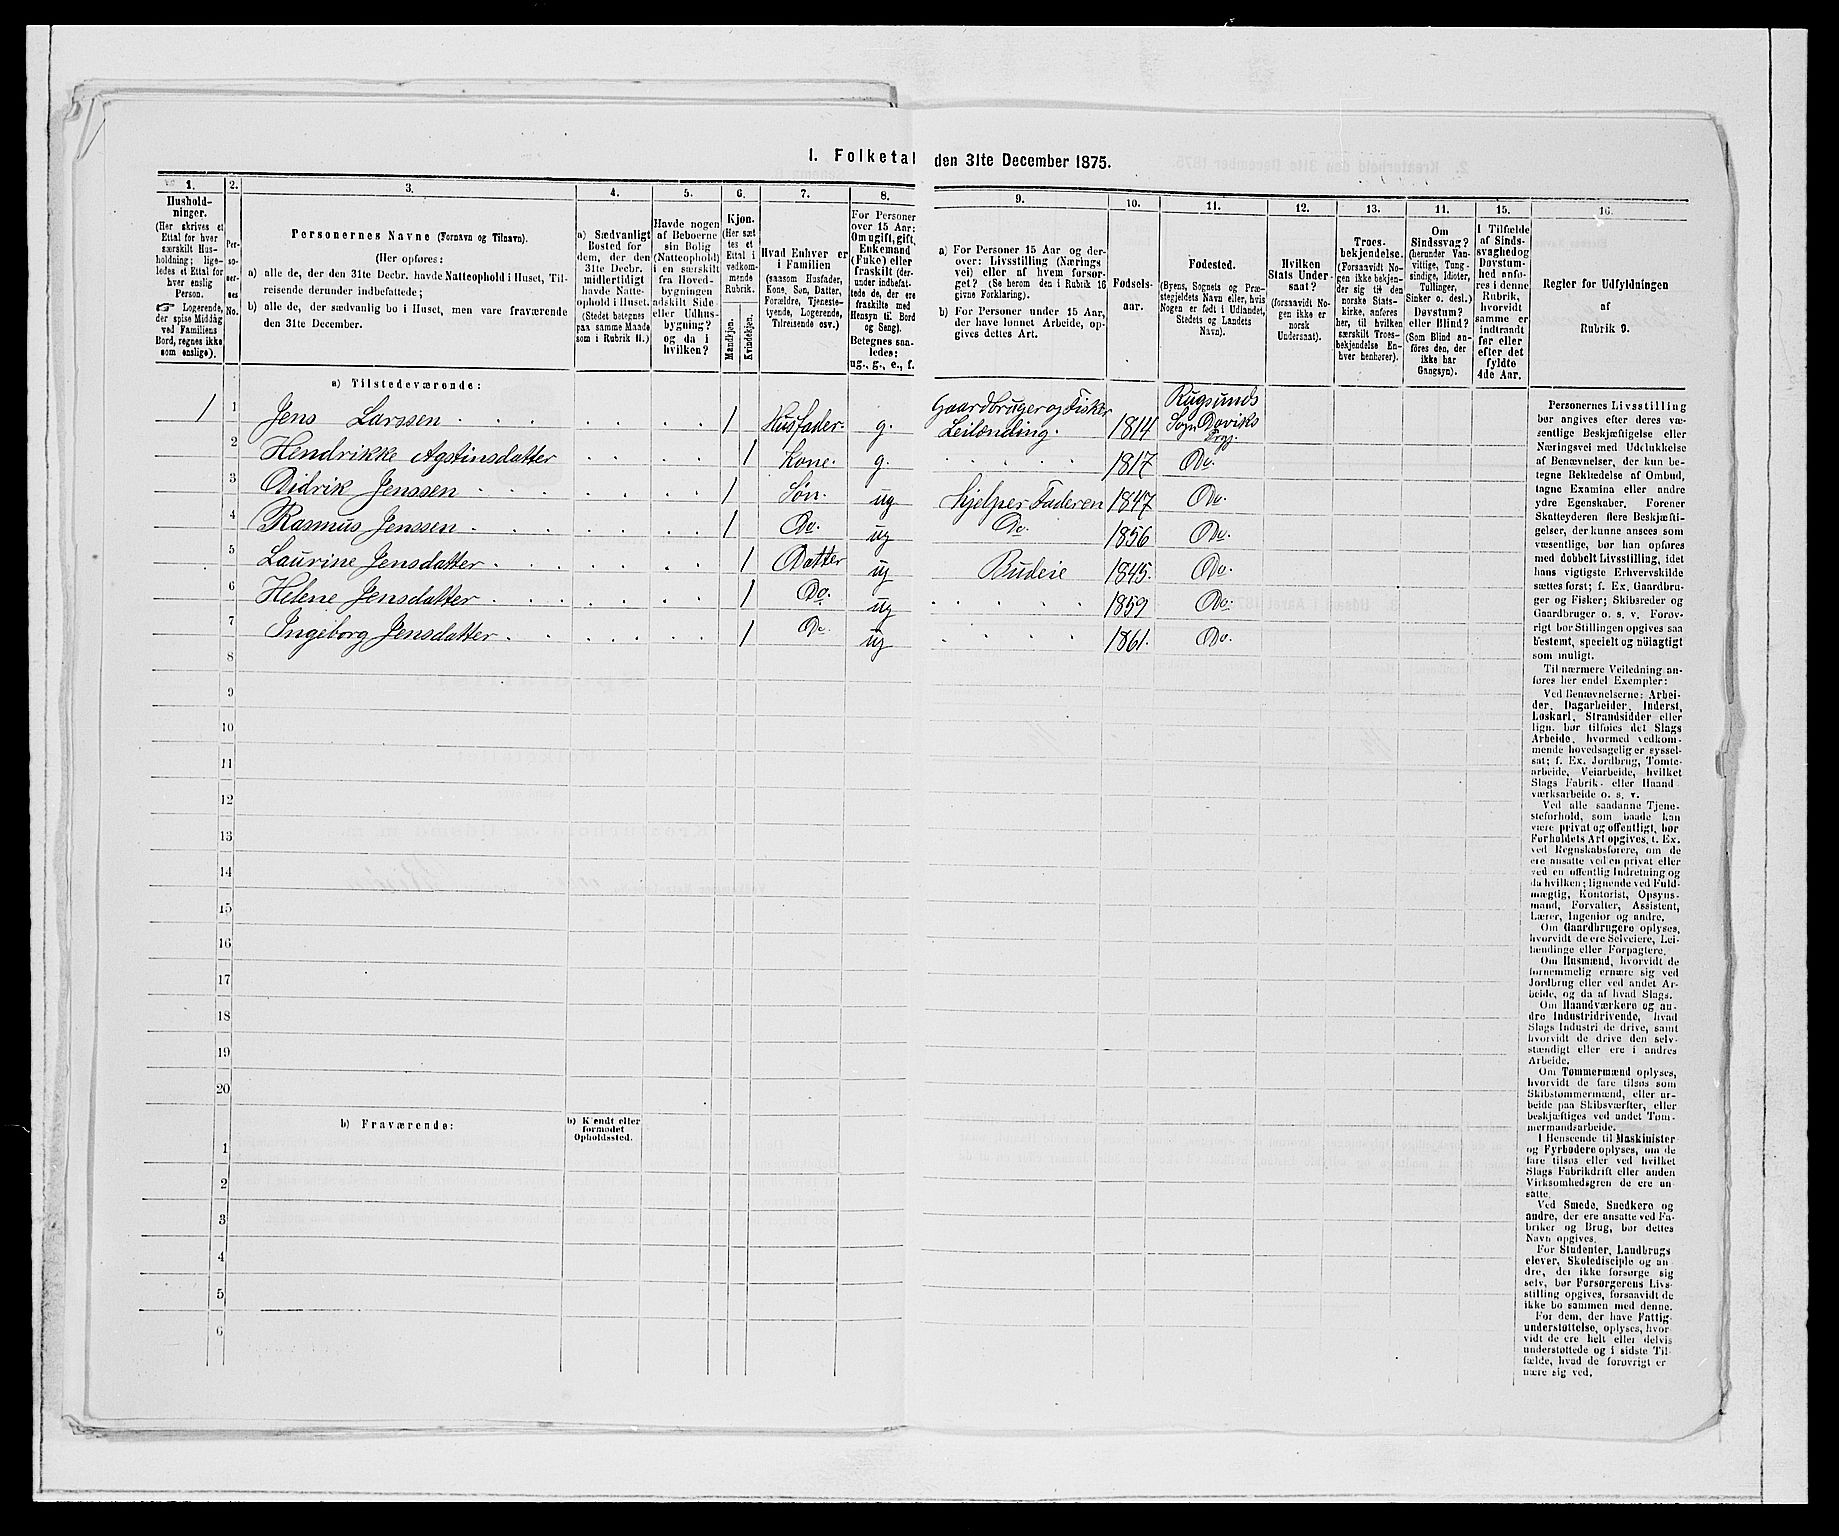 I. Folketal den 31te December 1875.
1. 2. 3. 4. 5. 6. 7. 8. 9. 10. 11. 12. 13. 11. 15. 16.
Hushold-
ninger.
(Her skrives et
Ettal for hver
særskilt Hus-
holdning; lige-
ledes et Ettal for
hver enslig
Person.
☞ Logerende,
der spise Middag
ved Familiens
Bord, regnes ikke
som enslige).
Per-
so-
ner-
nes
No.
Personernes Navne (Fornavn og Tilnavn).
(Her opføres:
a) alle de, der den 31te Decbr. havde Natteophold i Huset, Til-
reisende derunder indbefattede;
b) alle de, der sædvanlig bo i Huset, men vare fraværende
den 31te December.
a) Sædvanligt
Bosted for
dem, der den
31te Decbr.
midlertidigt
havde Natte-
ophold i Huset.
(Stedet betegnes
paa samme Maade
som i Rubrik 11.)
Havde nogen
af Beboerne
sin Bolig
(Natteophold)
i en særskilt
fra Hoved-
bygningen
adskilt Side
eller Udhus-
bygning?
og da i
hvilken?
Kjøn.
(Her sæt
tes et
Ettal i
vedkom-
mende
Rubrik.
Mandkjøn.
Kvindekjøn.
Hvad Enhver er
i Familien
(saasom Husfader,
Kone, Søn, Datter,
Forældre, Tjeneste-
tyende, Logerende,
Tilreisende osv.)
For Personer
over 15 Aar:
Om ugift, gift,
Enkemand
(Enke) eller
fraskilt (der-
under indbefat-
tede de, der ere
fraskilte med
Hensyn til Bord
og Seng).
Betegnes saa-
ledes:
ug., g., e., f.
a) For Personer 15 Aar og der-
over: Livsstilling (Nærings
vei) eller af hvem forsør-
get? (Se herom den i Rubrik 16
givne Forklaring).
b) For Personer under 15 Aar,
der have lønnet Arbeide, op-
gives dettes Art.
Fødsels-
aar.
Fødested.
(Byens, Sognets og Præ-
stegjeldets Navn eller, hvis
Nogen er født i Udlandet,
Stedets og Landets
Navn).
Hvilken
Stats Under-
saat?
(forsaavidt No-
gen ikke er
norsk
Undersaat).
Troes-
bekjendelse.
(Forsaavidt No-
gen ikke bekjen-
der sig til den
norske Stats-
kirke, anføres
her, til hvilken
særskilt Troes-
bekjendelse En-
hver henhører).
Om
Sindssvag?
(herunder Van-
vittige, Tung-
sindige, Idioter,
Tullinger,
Sinker o. desl.)
Døvstum?
eller Blind?
(Som Blind an-
føres den, der
ikke har
Gangsyn).
I Tilfælde
af Sinds-
svaghed og
Døvstum-
hed anfø-
res i denne
Rubrik,
hvorvidt
samme er
indtraadt
før eller
efter det
fyldte
4de Aar.
Regler for Udfyldningen
af
Rubrik 9.
a) Tilstedeværende:
1 1 Jens Larssen 1 Husfader g. Gaardbruger og Fisker Leilænding. 1814 Rugsunds Sogn Daviks Prgj.
2 Hendrikke Agstinsdatter 1 Kone. g. 1817 Do.
3 Didrik Jenssen 1 Søn. ug Hjelper Faderen 1847 Do.
4 Rasmus Jenssen 1 Do. ug Do. 1856 Do.
5 Laurine Jensdatter 1 Datter ug Budeie 1845. Do.
6 Helene Jensdatter 1 Do. ug 1859 Do.
7 Ingeborg Jensdatter 1 Do. ug 1861. Do.
8
9
10
11
12
13
14
15
16
17
18
19
20
b) Fraværende:
b) Kjendt eller
formodet
Opholdssted.
1
2
3
4
5
6
Personernes Livsstilling
bør angives efter deres væ-
sentlige Beskjæftigelse eller
Næringsvei med Udelukkelse
af Benævnelser, der kun be-
tegne Bekledelse af Ombud,
tagne Examina eller andre
ydre Egenskaber. Forener
Skatteyderen flere Beskjæfti-
gelser, der kunne ansees som
væsentlige, bør han opføres
med dobbelt Livsstilling, idet
hans vigtigste Erhvervskilde
sættes først; f. Ex. Gaardbru-
ger og Fisker; Skibsreder og
Gaardbruger o. s. v. Forøv-
rigt bør Stillingen opgives saa
bestemt, specielt og nöiagtigt
som muligt.
Til nærmere Veiledning an-
føres her endel Exempler:
Ved Benævnelserne: Arbei-
der, Dagarbeider, Inderst,
Løskarl, Strandsidder eller
lign. bør tilføies det Slags
Arbeide, hvormed vedkom-
mende hovedsagelig er syssel-
sat; f. Ex. Jordbrug, Tomte-
arbeide, Veiarbeide, hvilket
Slags Fabrik- eller Haand
værksarbeide o. s. v.
Ved alle saadanne Tjene-
steforhold, som baade kan
være privat og offentligt, bør
Forholdets Art opgives, t. Ex.
ved Regnskabsførere, om de
ere ansatte ved en privat eller
ved en offentlig Indretning og
da hvilken; lignende ved Fuld-
mægtig, Kontorist, Opsyns-
mand, Forvalter, Assistent,
Lærer, Ingeniør og andre.
Om Gaardbrugere oplyses,
hvorvidt de ere Selveiere, Lei-
lændinge eller Forpagtere.
Om Husmænd, hvorvidt de
fornemmelig ernære sig ved
Jordbrug eller ved andet Ar-
beide, og da af hvad Slags.
Om Haandværkere og an-
dre Industridrivende, hvad
Slags Industri de drive, samt
hvorvidt de drive den selv-
stændigt eller ere i andres
Arbeide.
Om Tømmermænd oplyses,
hvorvidt de fare tilsøs som
Skibstømmermænd, eller ar-
beide paa Skibsværfter, eller
beskjæftiges ved andet Tøm-
mermandsarbeide.
I Henseende til Maskinister
og Fyrbødere oplyses, om de
fare tilsøs eller ved hvilket
Slags Fabrikdrift eller anden
Virksomhedsgren de ere an-
satte.
Ved Smede, Snedkere og
andre, der ere ansatte ved Fa-
briker og Brug, bør dettes
Navn opgives.
For Studenter, Landbrugs
elever, Skoledisciple og an-
dre, der ikke forsørge sig
selv, bør Forsørgerens Livs-
stilling opgives, forsaavidt de
ikke bo sammen med denne.
For dem, der have Fattig-
understøttelse, oplyses, hvor-
vidt de ere helt eller delvis
understøttede og i sidste Til-
fælde, hvad de forøvrigt er
nære sig ved.